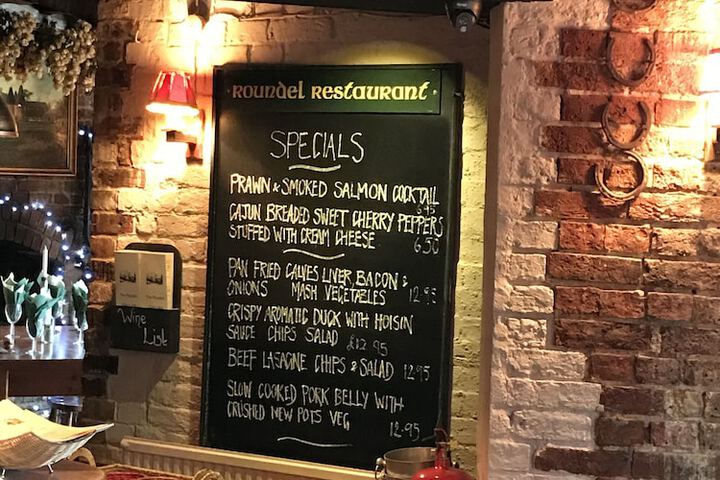 · ROUNDEL RESTAURANT ·
SPECIALS
PRAWN & SMOKED SALMON COCKTAIL
CAJUN BREADED SWEET CHERRY PEPPERS
STUFFED WITH CREAM CHEESE 6.50
PAN FRIED CALVES LIVER, BACON &
ONIONS MASH VEGETABLES 12.95
CRISPY AROMATIC DUCK WITH HOISIN
SAUCE CHIPS SALAD £12.95
BEEF LASAGNE CHIPS & SALAD 12.95
SLOW COOKED PORK BELLY WITH
CRUSHED NEW POTS VEG
12.95
Wine
List